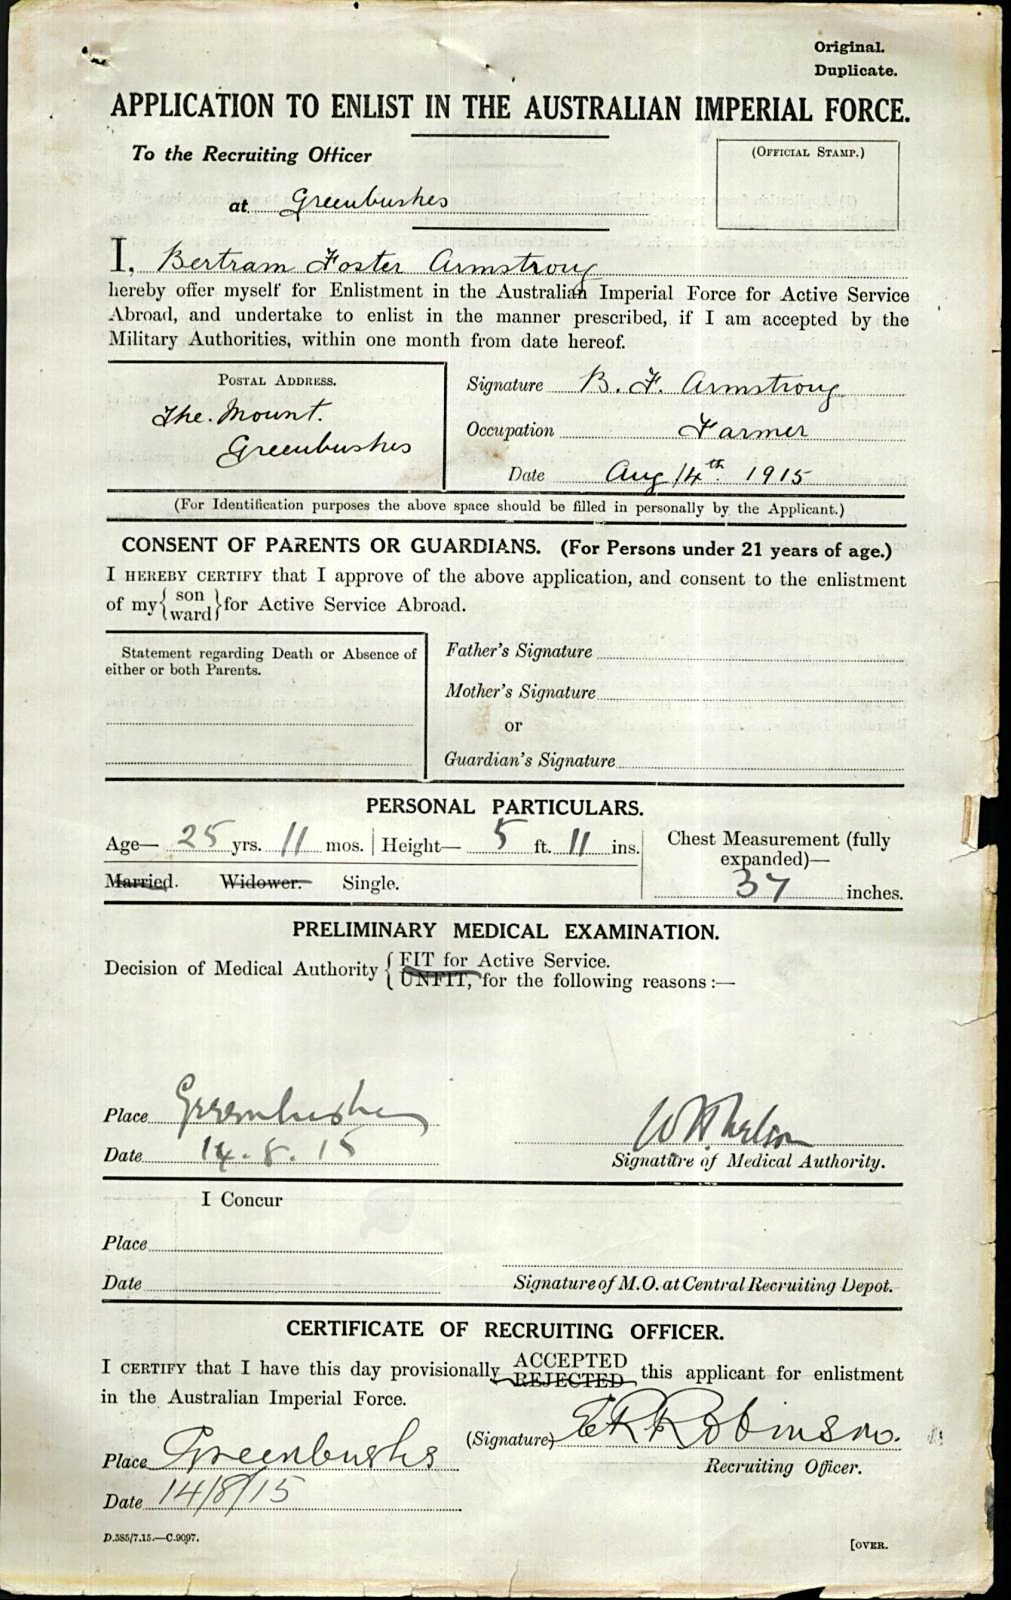 Original.
Duplicate.
APPLICATION TO ENLIST IN THE AUSTRALIAN IMPERIAL FORCE.
To the Recruiting Officer
(OFFICIAL STAMP.)
at Greenbushes
I, Bertram Foster Armstrong
hereby offer myself for Enlistment in the Australian Imperial Force for Active Service
Abroad, and undertake to enlist in the manner prescribed, if I am accepted by the
Military Authorities, within one month from date hereof.
POSTAL ADDRESS.
The. Mount.
Greenbushes
Signature B. F. Armstrong
Occupation Farmer
Date Aug 14th. 1915
(For Identification purposes the above space should be filled in personally by the Applicant.)
CONSENT OF PARENTS OR GUARDIANS. (For Persons under 21 years of age.)
I HEREBY CERTIFY that I approve of the above application, and consent to the enlistment
of my { son ward } for Active Service Abroad.
Statement regarding Death or Absence of
either or both Parents.
Father's Signature
Mother's Signature
or
Guardian's Signature
PERSONAL PARTICULARS.
Age— 25 yrs. 11 mos. Height— 5 ft. 11 ins.
Married. Widower. Single.
Chest Measurement (fully
expanded)—
37 inches.
PRELIMINARY MEDICAL EXAMINATION.
Decision of Medical Authority { FIT for Active Service.
UNFIT, for the following reasons:—
Place Greenbushes
Date 14.8.15
Signature of Medical Authority.
I Concur
Place
Date
Signature of M.O. at Central Recruiting Depot.
CERTIFICATE OF RECRUITING OFFICER.
I CERTIFY that I have this day provisionally ACCEPTED REJECTED this applicant for enlistment
in the Australian Imperial Force.
(Signature) Robinson.
Recruiting Officer.
Place Greenbushes
Date 14/8/15
D.585/7.15.—C.9097.
[OVER.